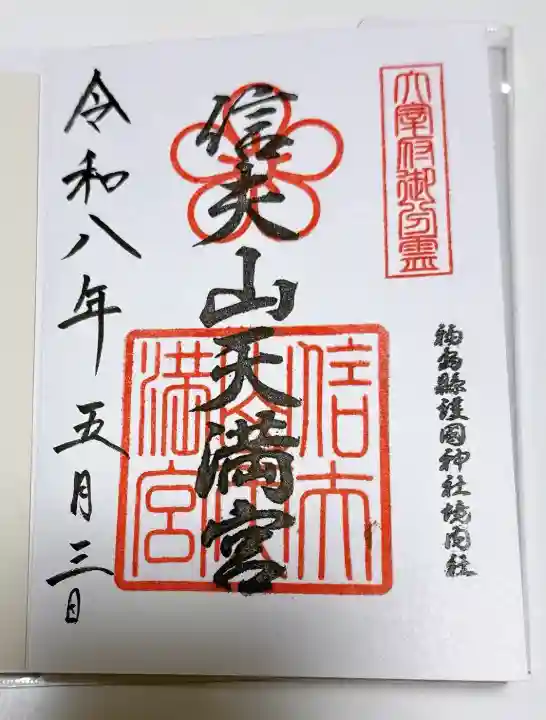 大宰府御分霊
福島縣護國神社境内社
信夫山天満宮
信夫
満宮
令和八年五月三日